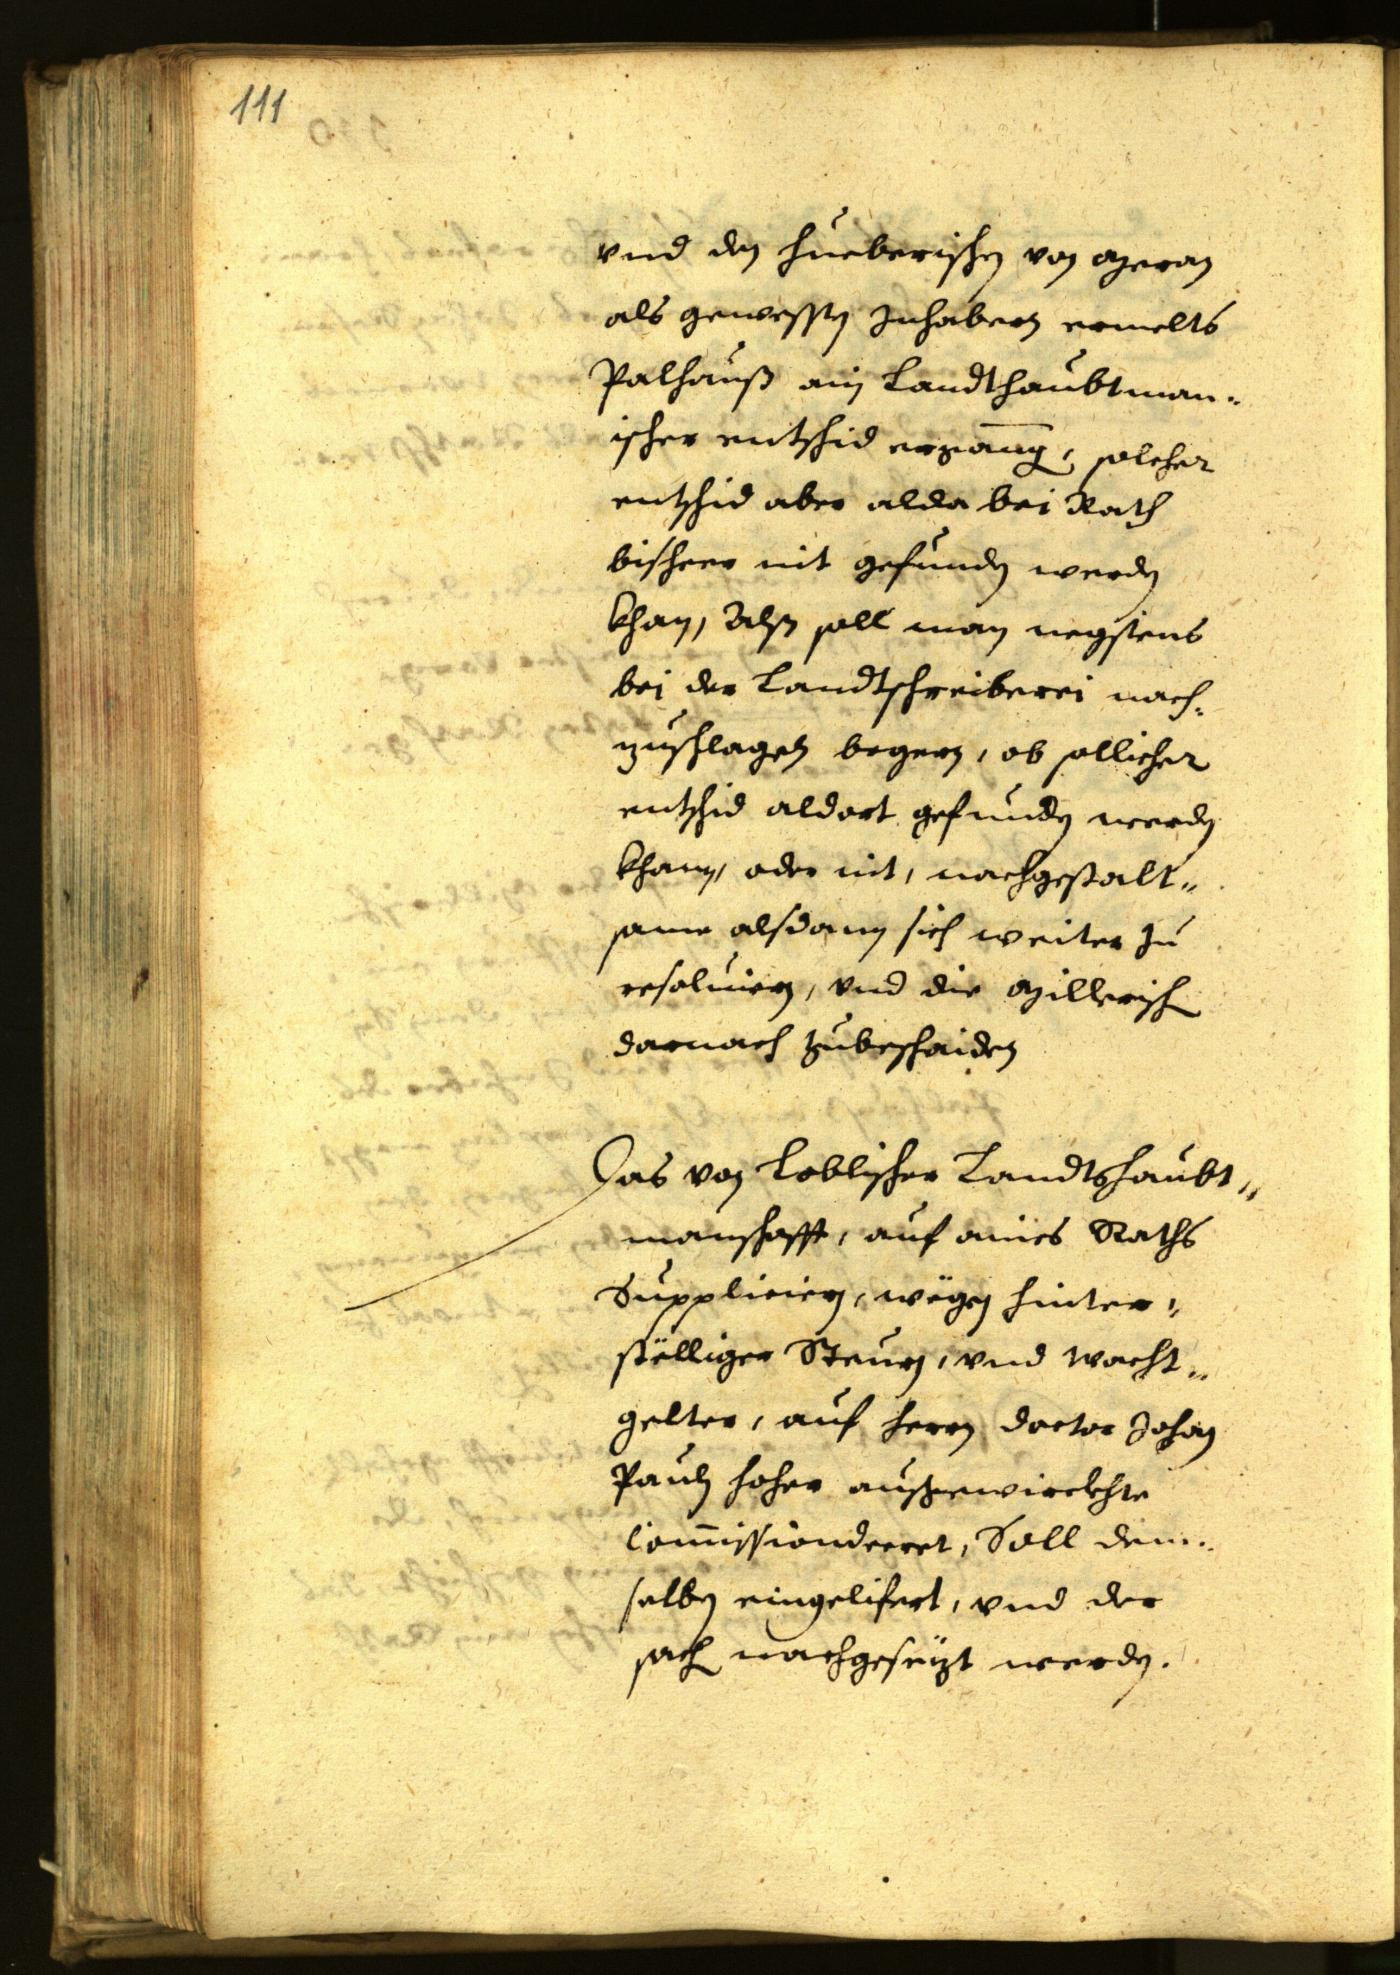 111
vnd den Hueberischen von Meran
als gewessten Inhabern ermelts
Palhauß ain Landthaubtman¬
ischer entschid ergangen, solcher
entschid aber alda bei Rath
bisheer nit gefunden werden
khan, Alß soll man negstens
bei der Landtschreiberei nach¬
zuschlagen begern, ob sollicher
entschid aldort gefunden werden
khann, oder nit, nachgestalt¬
same alsdann sich weiter zu
resoluiern, vnd die Millerisch
darnach zubeschaiden
Das von Loblicher Landtshaubt¬
manschafft, auf aines Raths
Supplicieren, wëgen hinter¬
stëlliger Steurn, vnd Wacht¬
gelter, auf herrn doctor Johan
Pauln Hoher außgewirckhte
Commissiondecret, Soll dem¬
selben eingelifert, vnd der
sach nachgesëzt werden.